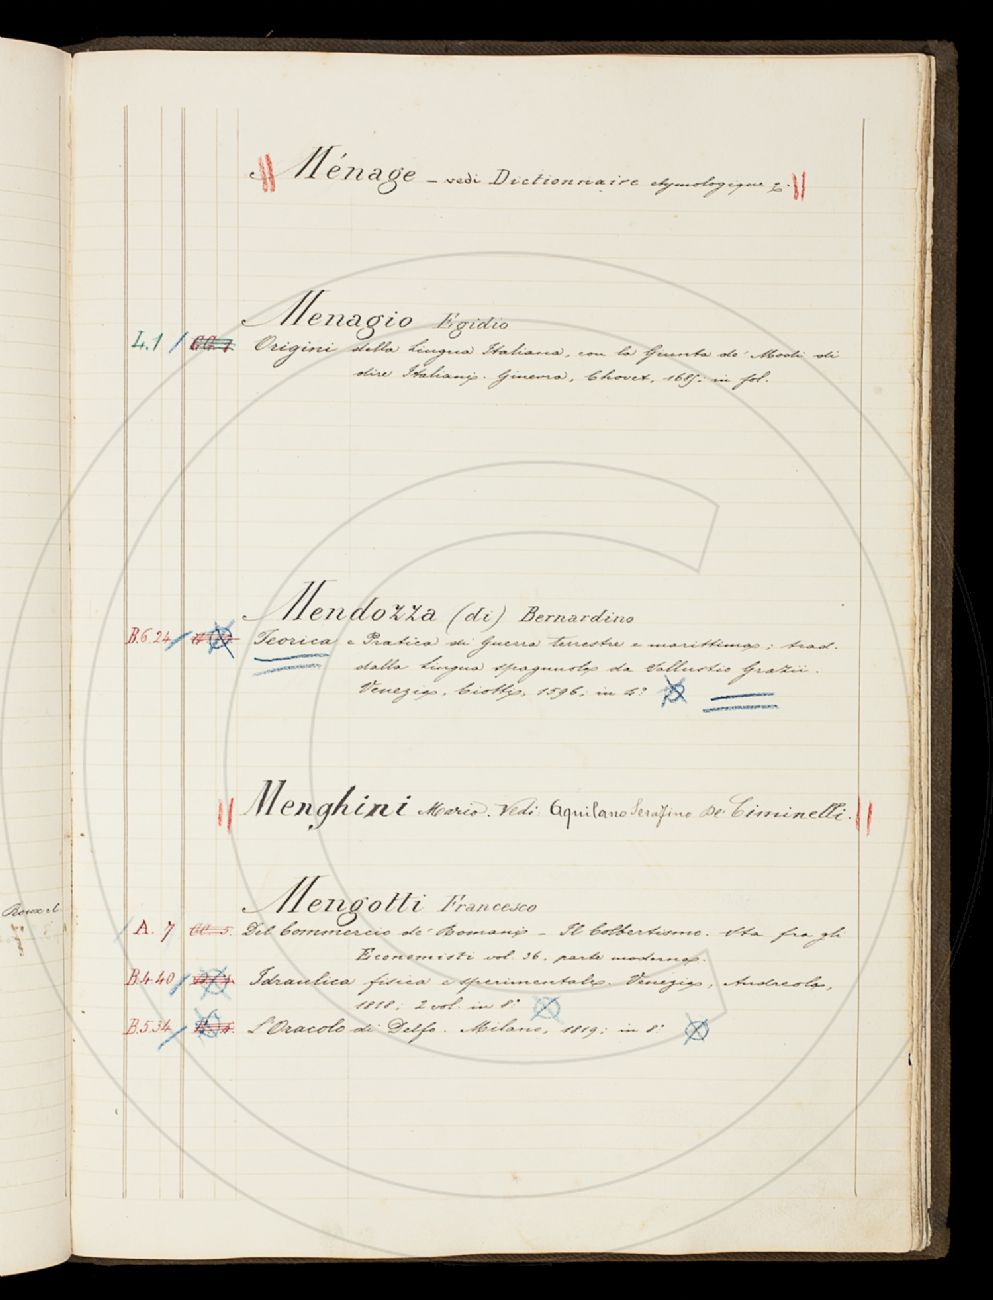 Ménage – vedi Dictionnaire etymologique &.
Menagio Egidio
L.1 CC.7. Origini della Lingua Italiana, con la Giunta de' Modi di
dire Italiani. Ginevra, Chovet, 1685. in fol.
Mendozza (di) Bernardino
B.6.24 Teorica e Pratica di Guerra terrestre e marittima; trad.
dalla Lingua spagnuola da Sallustio Grazii.
Venezia, Ciotti, 1596. in 4°
Menghini Mario. Vedi Aquilano Serafino De' Ciminelli.
Mengotti Francesco
A. 7 CC. 5. Del Commercio de' Romani – Il Colbertismo. Sta fra gli
Economisti vol. 36. parte moderna.
B.4.40 Idraulica fisica e sperimentale. Venezia, Andreola,
1818; 2 vol. in 8°
B.5.34 L'Oracolo di Delfo. Milano, 1819; in 8°